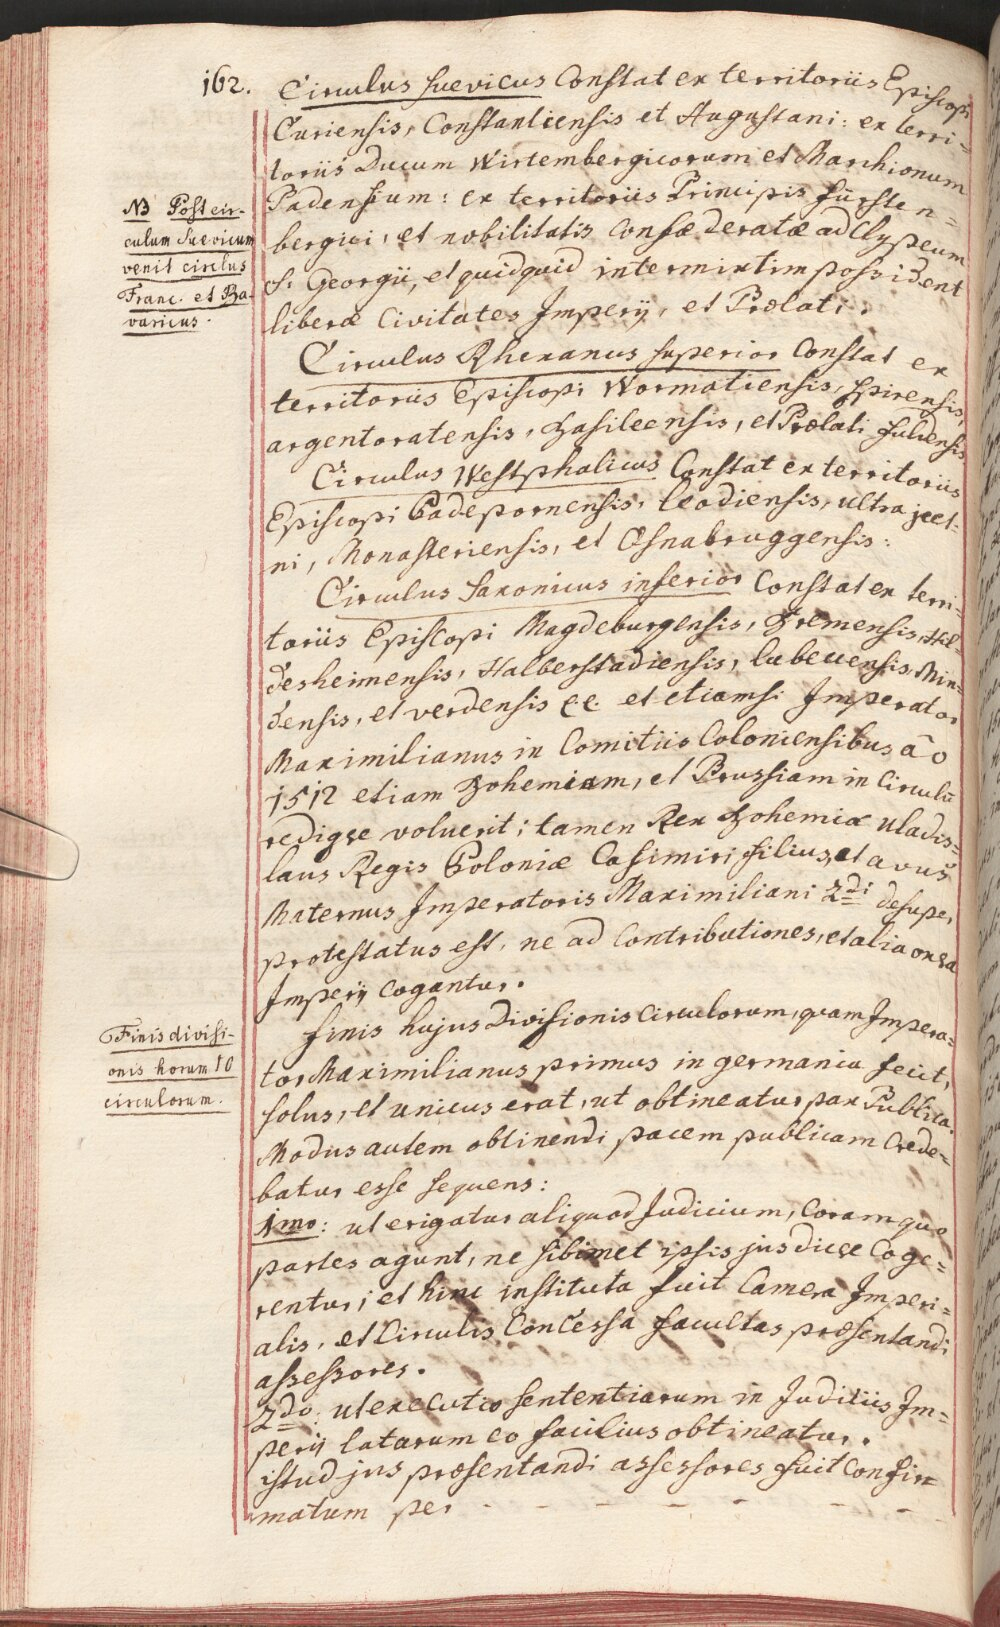 162.
Circulus Suevicus Constat ex territoriis Episcopi
Curiensis, Constantiensis et Augustani: ex terri=
toriis Ducum Wirtembergicorum et Marchionum
Badensium: ex territoriis Principis fürsten=
bergici, et nobilitatis Confœderatæ ad Clypeum
S. Georgii, et quidquid intermixtim possident
liberæ Civitates Imperij, et Prælati.
NB Post cir-
culum Suevicum
venit circlus
Franc. et Ba-
varicus.
Circulus Rhenanus superior Constat ex
territoriis Episcopi Wormatiensis, Spirensis,
argentoratensis, Basileensis, et Prælati fuldensis
Circulus Westphalicus Constat ex territoriis
Episcopi Paderpornensis, leodiensis, ultraject-
ni, Monasteriensis, et Osnabruggensis:
Circulus Saxonicus inferior Constat ex terri-
toriis Episcopi Magdeburgensis, Bremensis, Hil=
desheimensis, Halberstadiensis, lubecensis, Min=
densis, et verdensis &c. et etiamsi Imperator
Maximilianus in Comitiis Coloniensibus aõ
1512 etiam Bohemiam, et Prussiam in Circulũ
redigere voluerit; tamen Rex Bohemiæ Uladis=
laus Regis Poloniæ Casimiri filius, et avus
Maternus Imperatoris Maximiliani 2di desuper
protestatus est, ne ad Contributiones, et alia onera
Imperij Cogantur.
finis hujus Divisionis Circulorum, quam Impera=
tor Maximilianus primus in germania fecit,
solus, et unicus erat, ut obtineatur pax Publica.
Modus autem obtinendi pacem publicam Crede=
batur esse sequens:
Finis divisi-
onis horum 10
circulorum.
1mo: ut erigatur aliquod Judicium, Coram quo
partes agunt, ne sibimet ipsis jus dicere Coge=
rentur; et hinc instituta fuit Camera Imperi=
alis, et Circulis Concessa facultas præsentandi
assessores.
2do: ut executio sententiarum in Juditiis Im=
perij latarum eo facilius obtineatur.
istud jus præsentandi assessores fuit Confir=
matum per - - - - - - - -